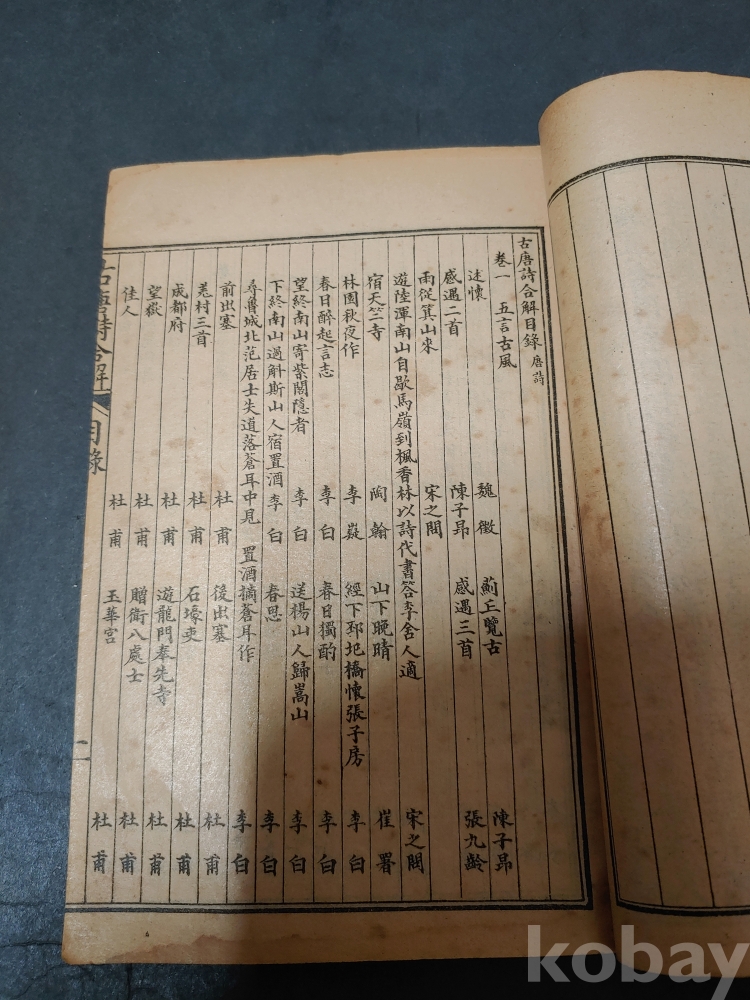 古唐詩合解目錄 唐詩
卷一 五言古風
述懷 魏徵 薊丘覽古 陳子昂
感遇二首 陳子昂 感遇三首 張九齡
雨從箕山來 宋之問
遊陸渾南山自歇馬嶺到楓香林以詩代書答李舍人適 宋之問
宿天竺寺 陶翰 山下晚晴 崔署
林園秋夜作 李嶷 經下邳圯橋懷張子房 李白
春日醉起言志 李白 春日獨酌 李白
望終南山寄紫閣隱者 李白 送楊山人歸嵩山 李白
下終南山過斛斯山人宿置酒 李白 春思 李白
尋魯城北范居士失道落蒼耳中見 置酒摘蒼耳作 李白
前出塞 杜甫 後出塞 杜甫
羌村三首 杜甫 石壕吏 杜甫
成都府 杜甫 遊龍門奉先寺 杜甫
望嶽 杜甫 贈衛八處士 杜甫
佳人 杜甫 玉華宮 杜甫
古唐詩合解 目錄
kobay